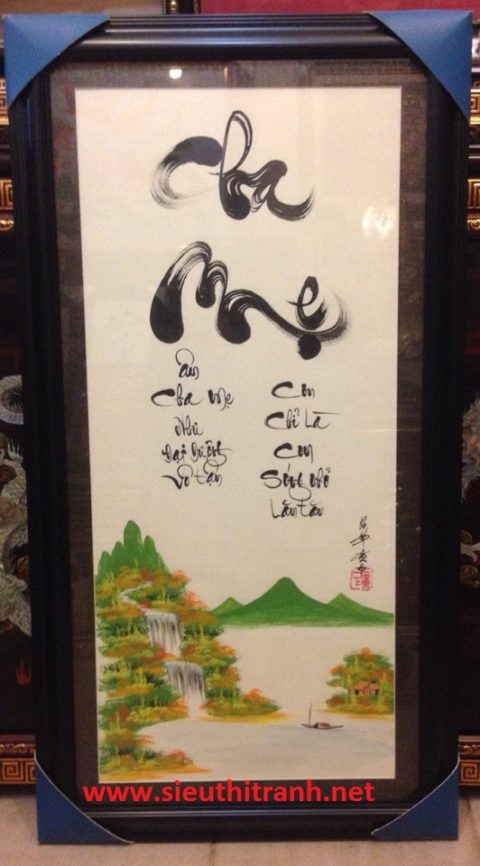 Cha
Mẹ
ân
Cha mẹ
như
Đại Dương
Vô tận
Con
Chỉ Là
Con
Sóng nhỏ
Lăn tăn
www.sieuthitranh.net